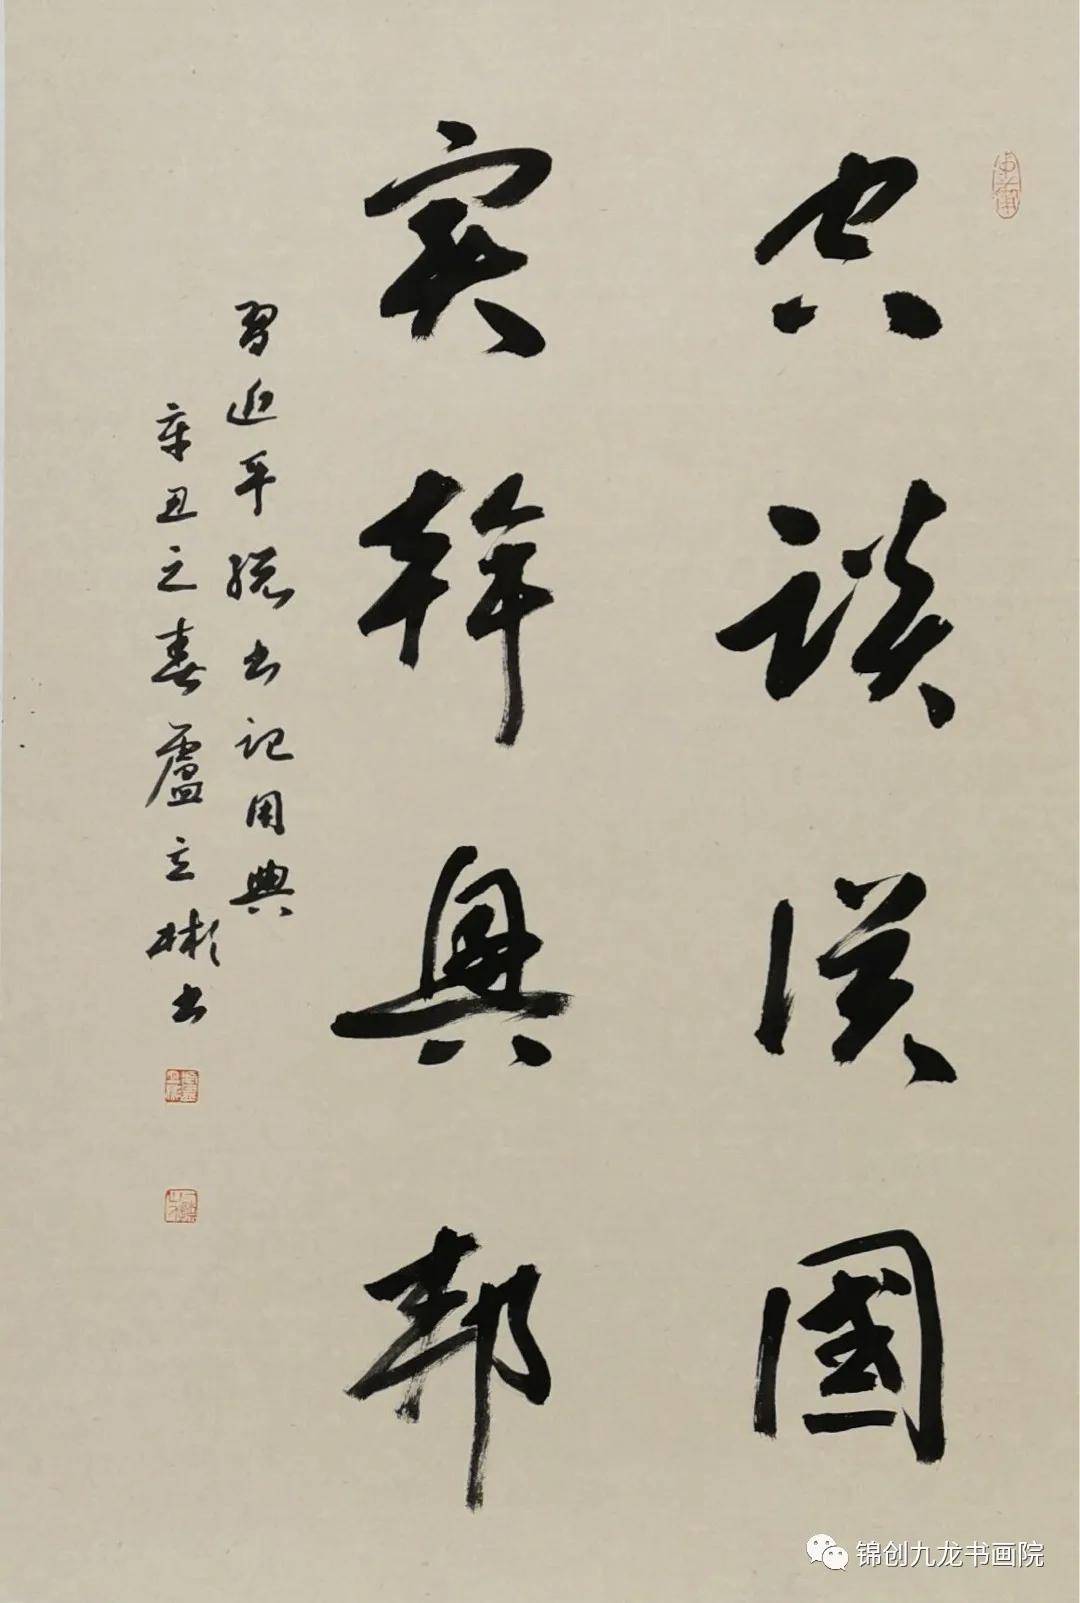 空談誤國
實幹興邦
習近平總書記用典
辛丑之春盧立彬書
锦创九龙书画院